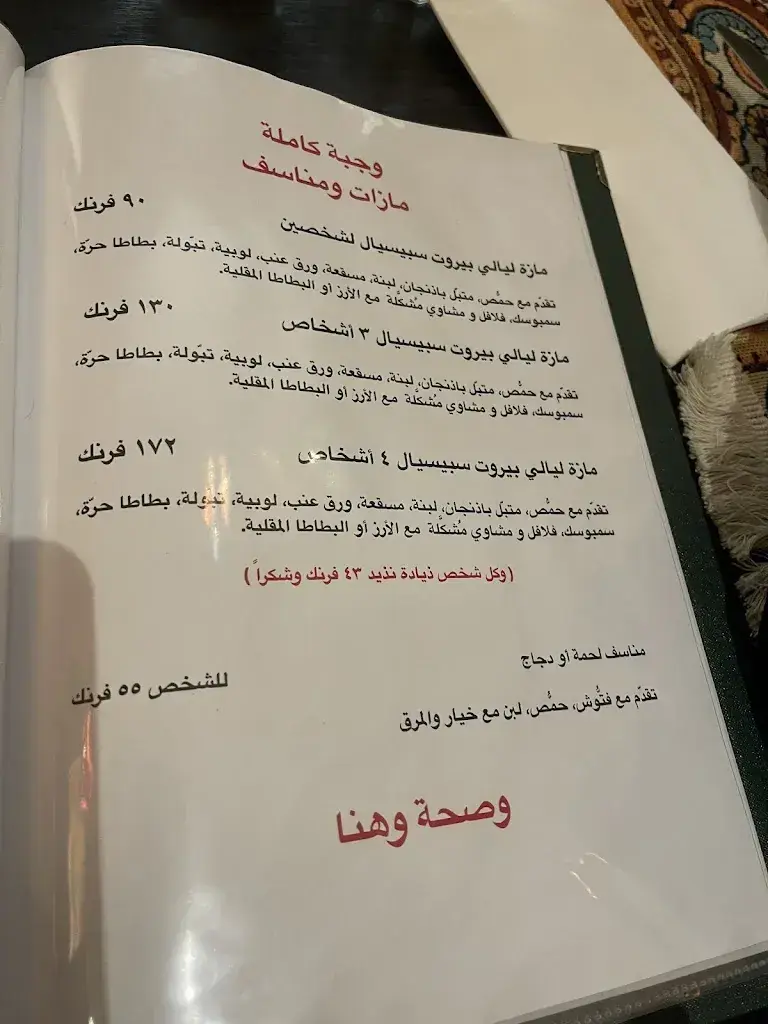 وجبة كاملة
مازات ومناسف
مازة ليالي بيروت سبيسيال لشخصين ٩٠ فرنك
تقدّم مع حمُّص، متبّل باذنجان، لبنة، مسقعة، ورق عنب، لوبية، تبّولة، بطاطا حرّة،
سمبوسك، فلافل و مشاوي مُشكَّلة مع الأرز أو البطاطا المقلية.
مازة ليالي بيروت سبيسيال ٣ أشخاص ١٣٠ فرنك
تقدّم مع حمُّص، متبّل باذنجان، لبنة، مسقعة، ورق عنب، لوبية، تبّولة، بطاطا حرّة،
سمبوسك، فلافل و مشاوي مُشكَّلة مع الأرز أو البطاطا المقلية.
مازة ليالي بيروت سبيسيال ٤ أشخاص ١٧٢ فرنك
تقدّم مع حمُّص، متبّل باذنجان، لبنة، مسقعة، ورق عنب، لوبية، تبّولة، بطاطا حرّة،
سمبوسك، فلافل و مشاوي مُشكَّلة مع الأرز أو البطاطا المقلية.
(وكل شخص ذيادة نذيد ٤٣ فرنك وشكراً )
مناسف لحمة أو دجاج للشخص ٥٥ فرنك
تقدّم مع فتُّوش، حمُّص، لبن مع خيار والمرق
وصحة وهنا